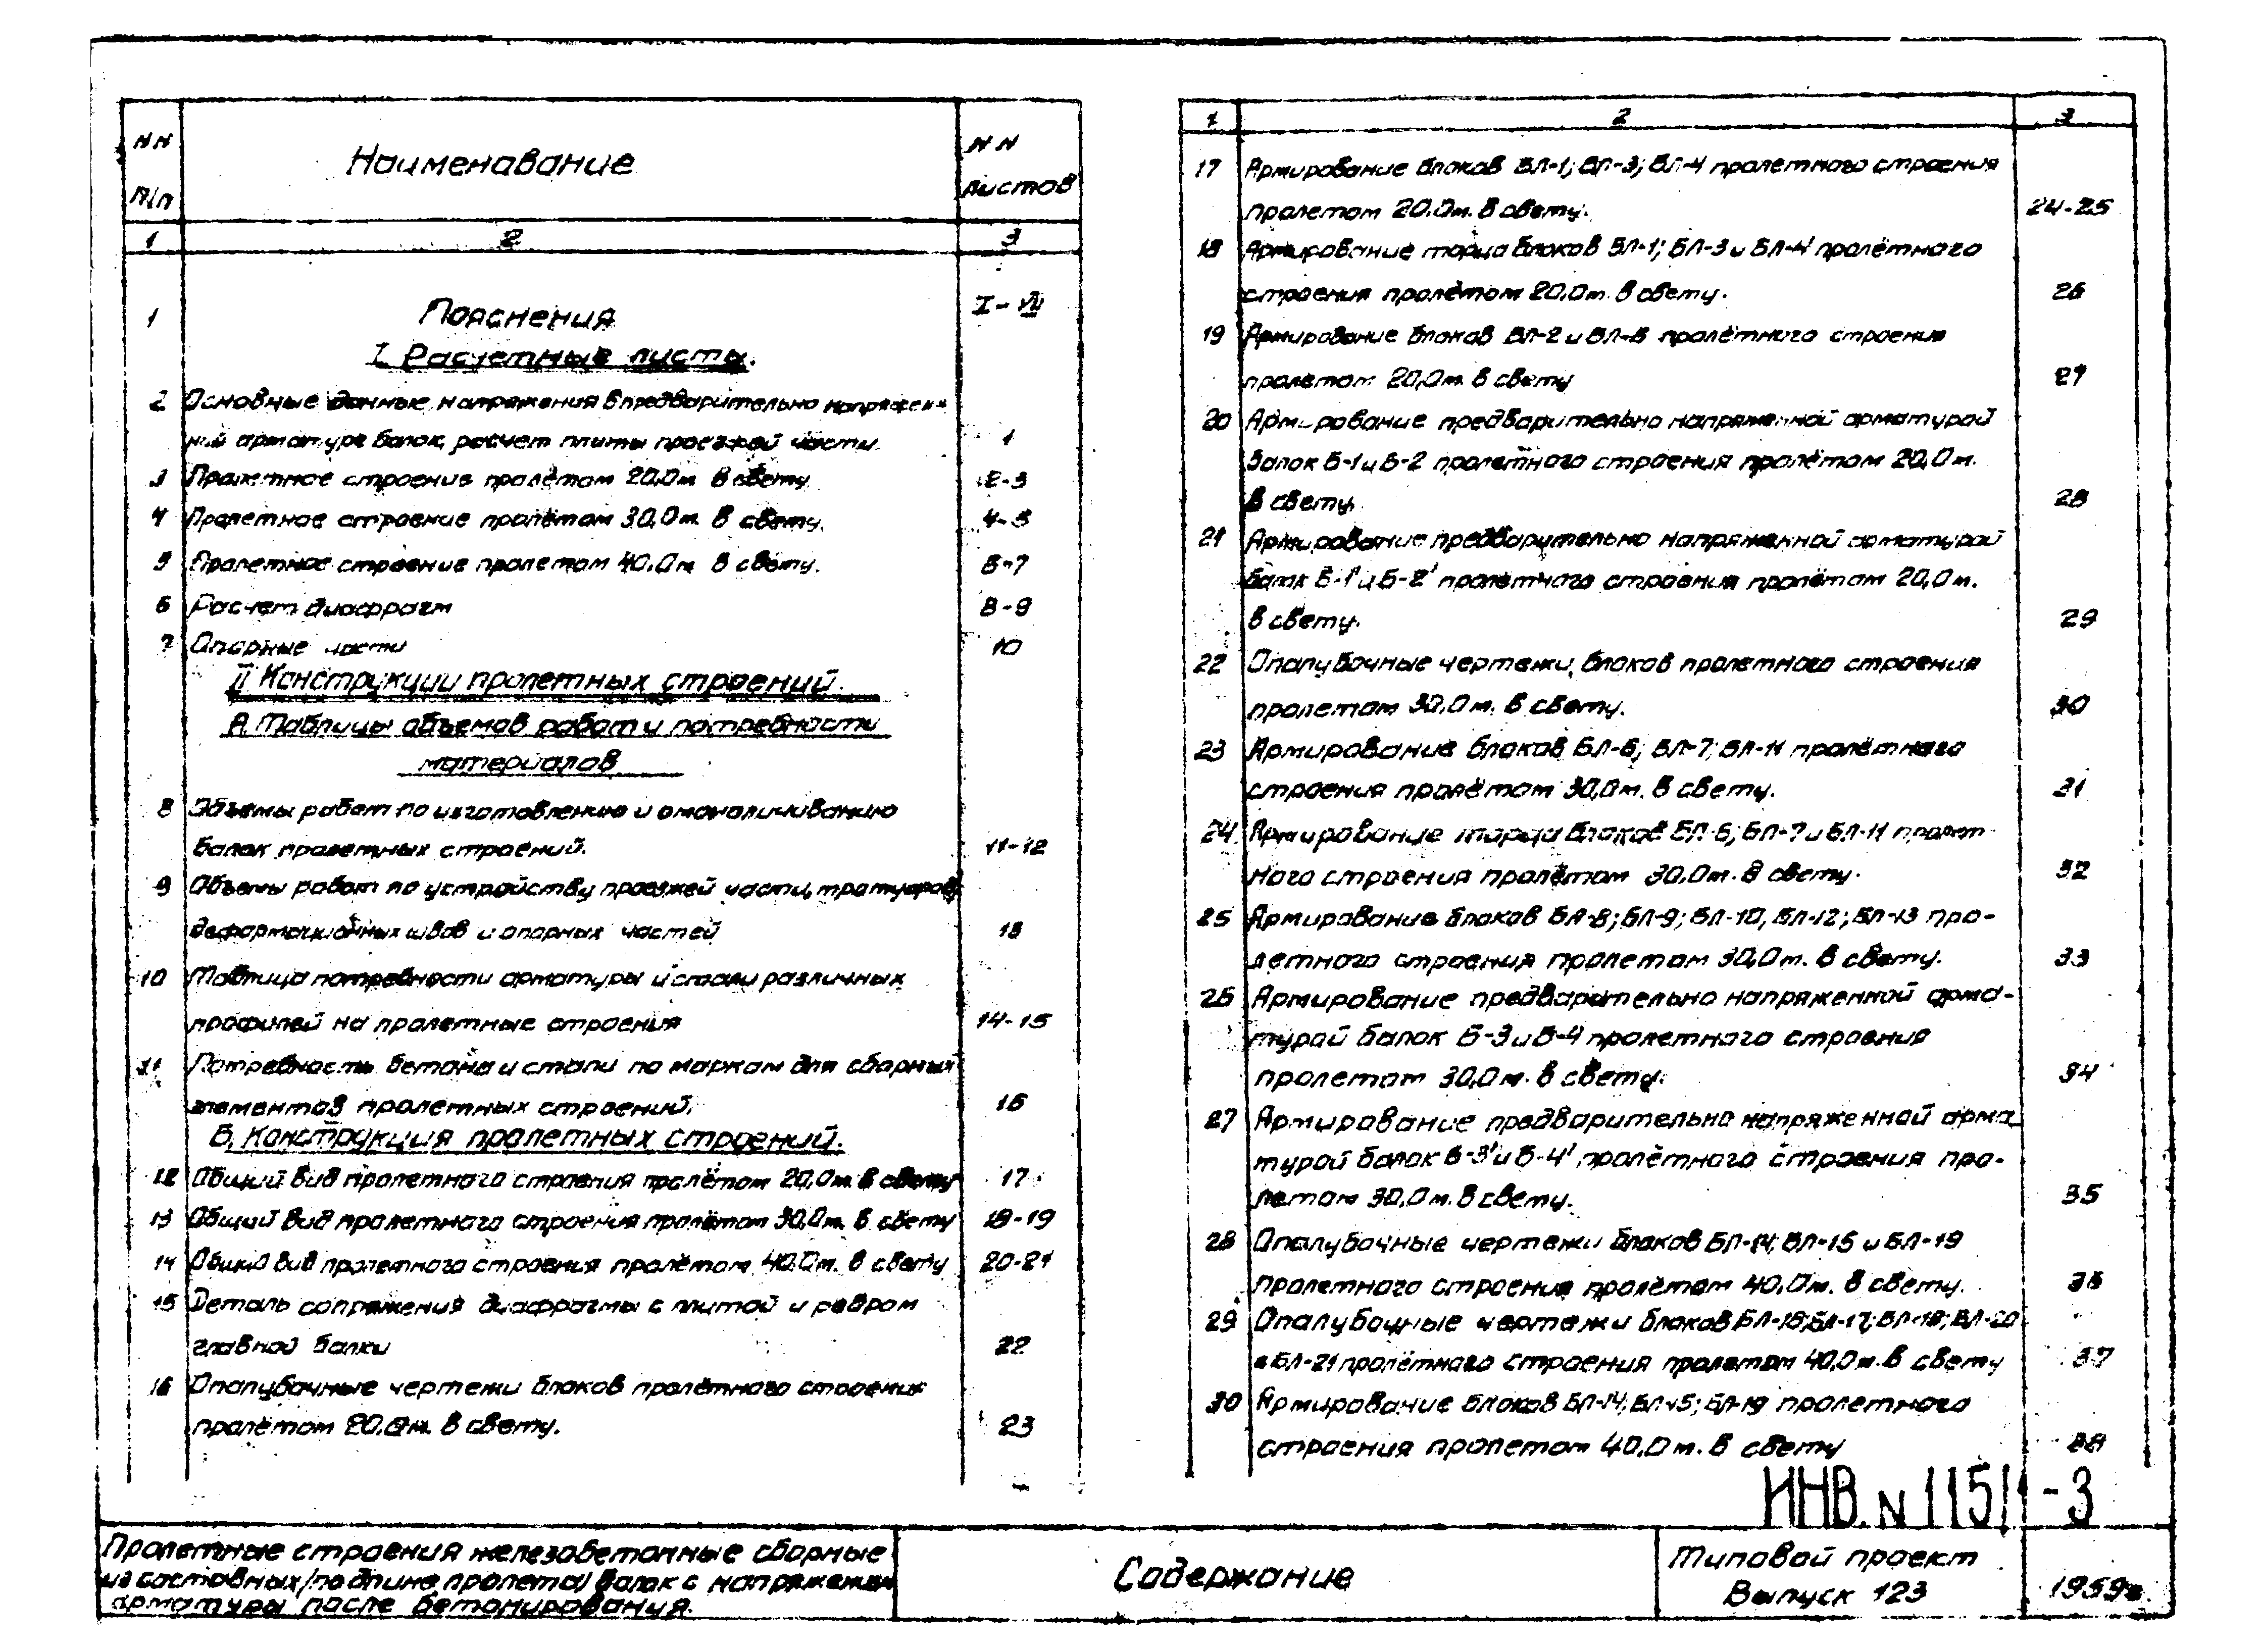 NN
п/п
Наименование
NN
листов
1 2 3
1 Пояснения I-VII
I. Расчетные листы.
2 Основные данные напряжения в предварительно напряжен-
ной арматуре балок, расчет плиты проезжей части. 1
3 Пролетное строение пролётом 20,0м. в свету 2-3
4 Пролетное строение пролётом 30,0м. в свету. 4-5
5 Пролетное строение пролетом 40,0м. в свету. 6-7
6 Расчет диафрагм 8-9
7 Опорные части 10
II Конструкции пролетных строений.
А. Таблицы объемов работ и потребности
материалов
8 Объемы работ по изготовлению и омоноличиванию
балок пролетных строений. 11-12
9 Объемы работ по устройству проезжей части, тротуаров,
деформационных швов и опорных частей 13
10 Таблица потребности арматуры и стали различных
профилей на пролетные строения 14-15
11 Потребность бетона и стали по маркам для сборных
элементов пролетных строений. 16
Б. Конструкция пролетных строений.
12 Общий вид пролетного строения пролётом 20,0м. в свету 17
13 Общий вид пролетного строения пролётом 30,0м. в свету 18-19
14 Общий вид пролетного строения пролётом 40,0м. в свету 20-21
15 Деталь сопряжения диафрагмы с плитой и ребром
главной балки 22
16 Опалубочные чертежи блоков пролётного строения
пролётом 20,0м. в свету. 23
1 2 3
17 Армирование блоков БЛ-1; БЛ-3; БЛ-4 пролетного строения
пролетом 20,0м. в свету. 24-25
18 Армирование торца блоков БЛ-1; БЛ-3 и БЛ-4 пролётного
строения пролётом 20,0м. в свету. 26
19 Армирование блоков БЛ-2 и БЛ-5 пролётного строения
пролётом 20,0м. в свету 27
20 Армирование предварительно напряженной арматурой
балок Б-1 и Б-2 пролетного строения пролётом 20,0м.
в свету. 28
21 Армирование предварительно напряженной арматурой
балок Б-1' и Б-2' пролетного строения пролётом 20,0м.
в свету. 29
22 Опалубочные чертежи блоков пролетного строения
пролетом 30,0м. в свету. 30
23 Армирование блоков БЛ-6; БЛ-7; БЛ-11 пролётного
строения пролётом 30,0м. в свету. 31
24 Армирование торца блоков БЛ-6; БЛ-7 и БЛ-11 пролет-
ного строения пролётом 30,0м. в свету. 32
25 Армирование блоков БЛ-8; БЛ-9; БЛ-10, БЛ-12; БЛ-13 про-
летного строения пролетом 30,0м. в свету. 33
26 Армирование предварительно напряженной арма-
турой балок Б-3 и Б-4 пролетного строения
пролетом 30,0м. в свету. 34
27 Армирование предварительно напряженной арма-
турой балок Б-3' и Б-4' пролётного строения про-
летом 30,0м. в свету. 35
28 Опалубочные чертежи блоков БЛ-14; БЛ-15 и БЛ-19
пролетного строения пролётом 40,0м. в свету. 36
29 Опалубочные чертежи блоков БЛ-16; БЛ-17; БЛ-18; БЛ-20
и БЛ-21 пролётного строения пролетом 40,0м. в свету 37
30 Армирование блоков БЛ-14; БЛ-15; БЛ-19 пролетного
строения пролетом 40,0м. в свету 38
ИНВ. N 115/1-3
Пролетные строения железобетонные сборные
из составных/по длине пролета/ балок с напряжением
арматуры после бетонирования.
Содержание
Типовой проект
Выпуск 123
1959г.